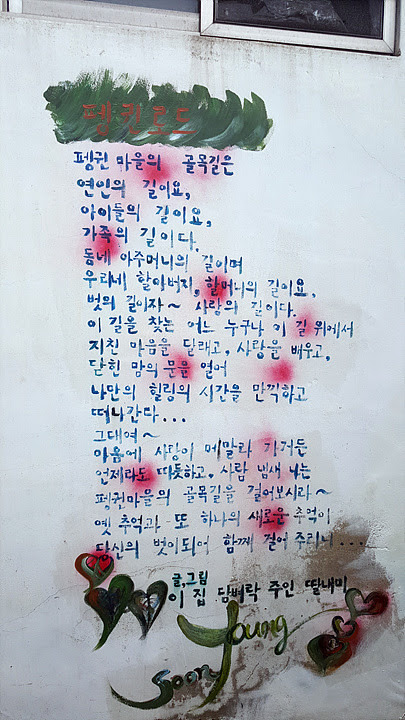 펭귄로드
펭귄 마을의 골목길은
연인의 길이요,
아이들의 길이요,
가족의 길이다.
동네 아주머니의 길이며
우리네 할아버지, 할머니의 길이요,
벗의 길이자~ 사랑의 길이다.
이 길을 찾는 어느 누구나 이 길 위에서
지친 마음을 달래고, 사랑을 배우고,
닫힌 맘의 문을 열어
나만의 힐링의 시간을 만끽하고
떠나간다...
그대여~
마음에 사랑이 메말라 가거든
언제라도 따뜻하고, 사람 냄새 나는
펭귄마을의 골목길을 걸어보시라~
옛 추억과 또 하나의 새로운 추억이
당신의 벗이되어 함께 걸어 주리니....
글,그림
이 집 담벼락 주인 딸내미
Young
Soon